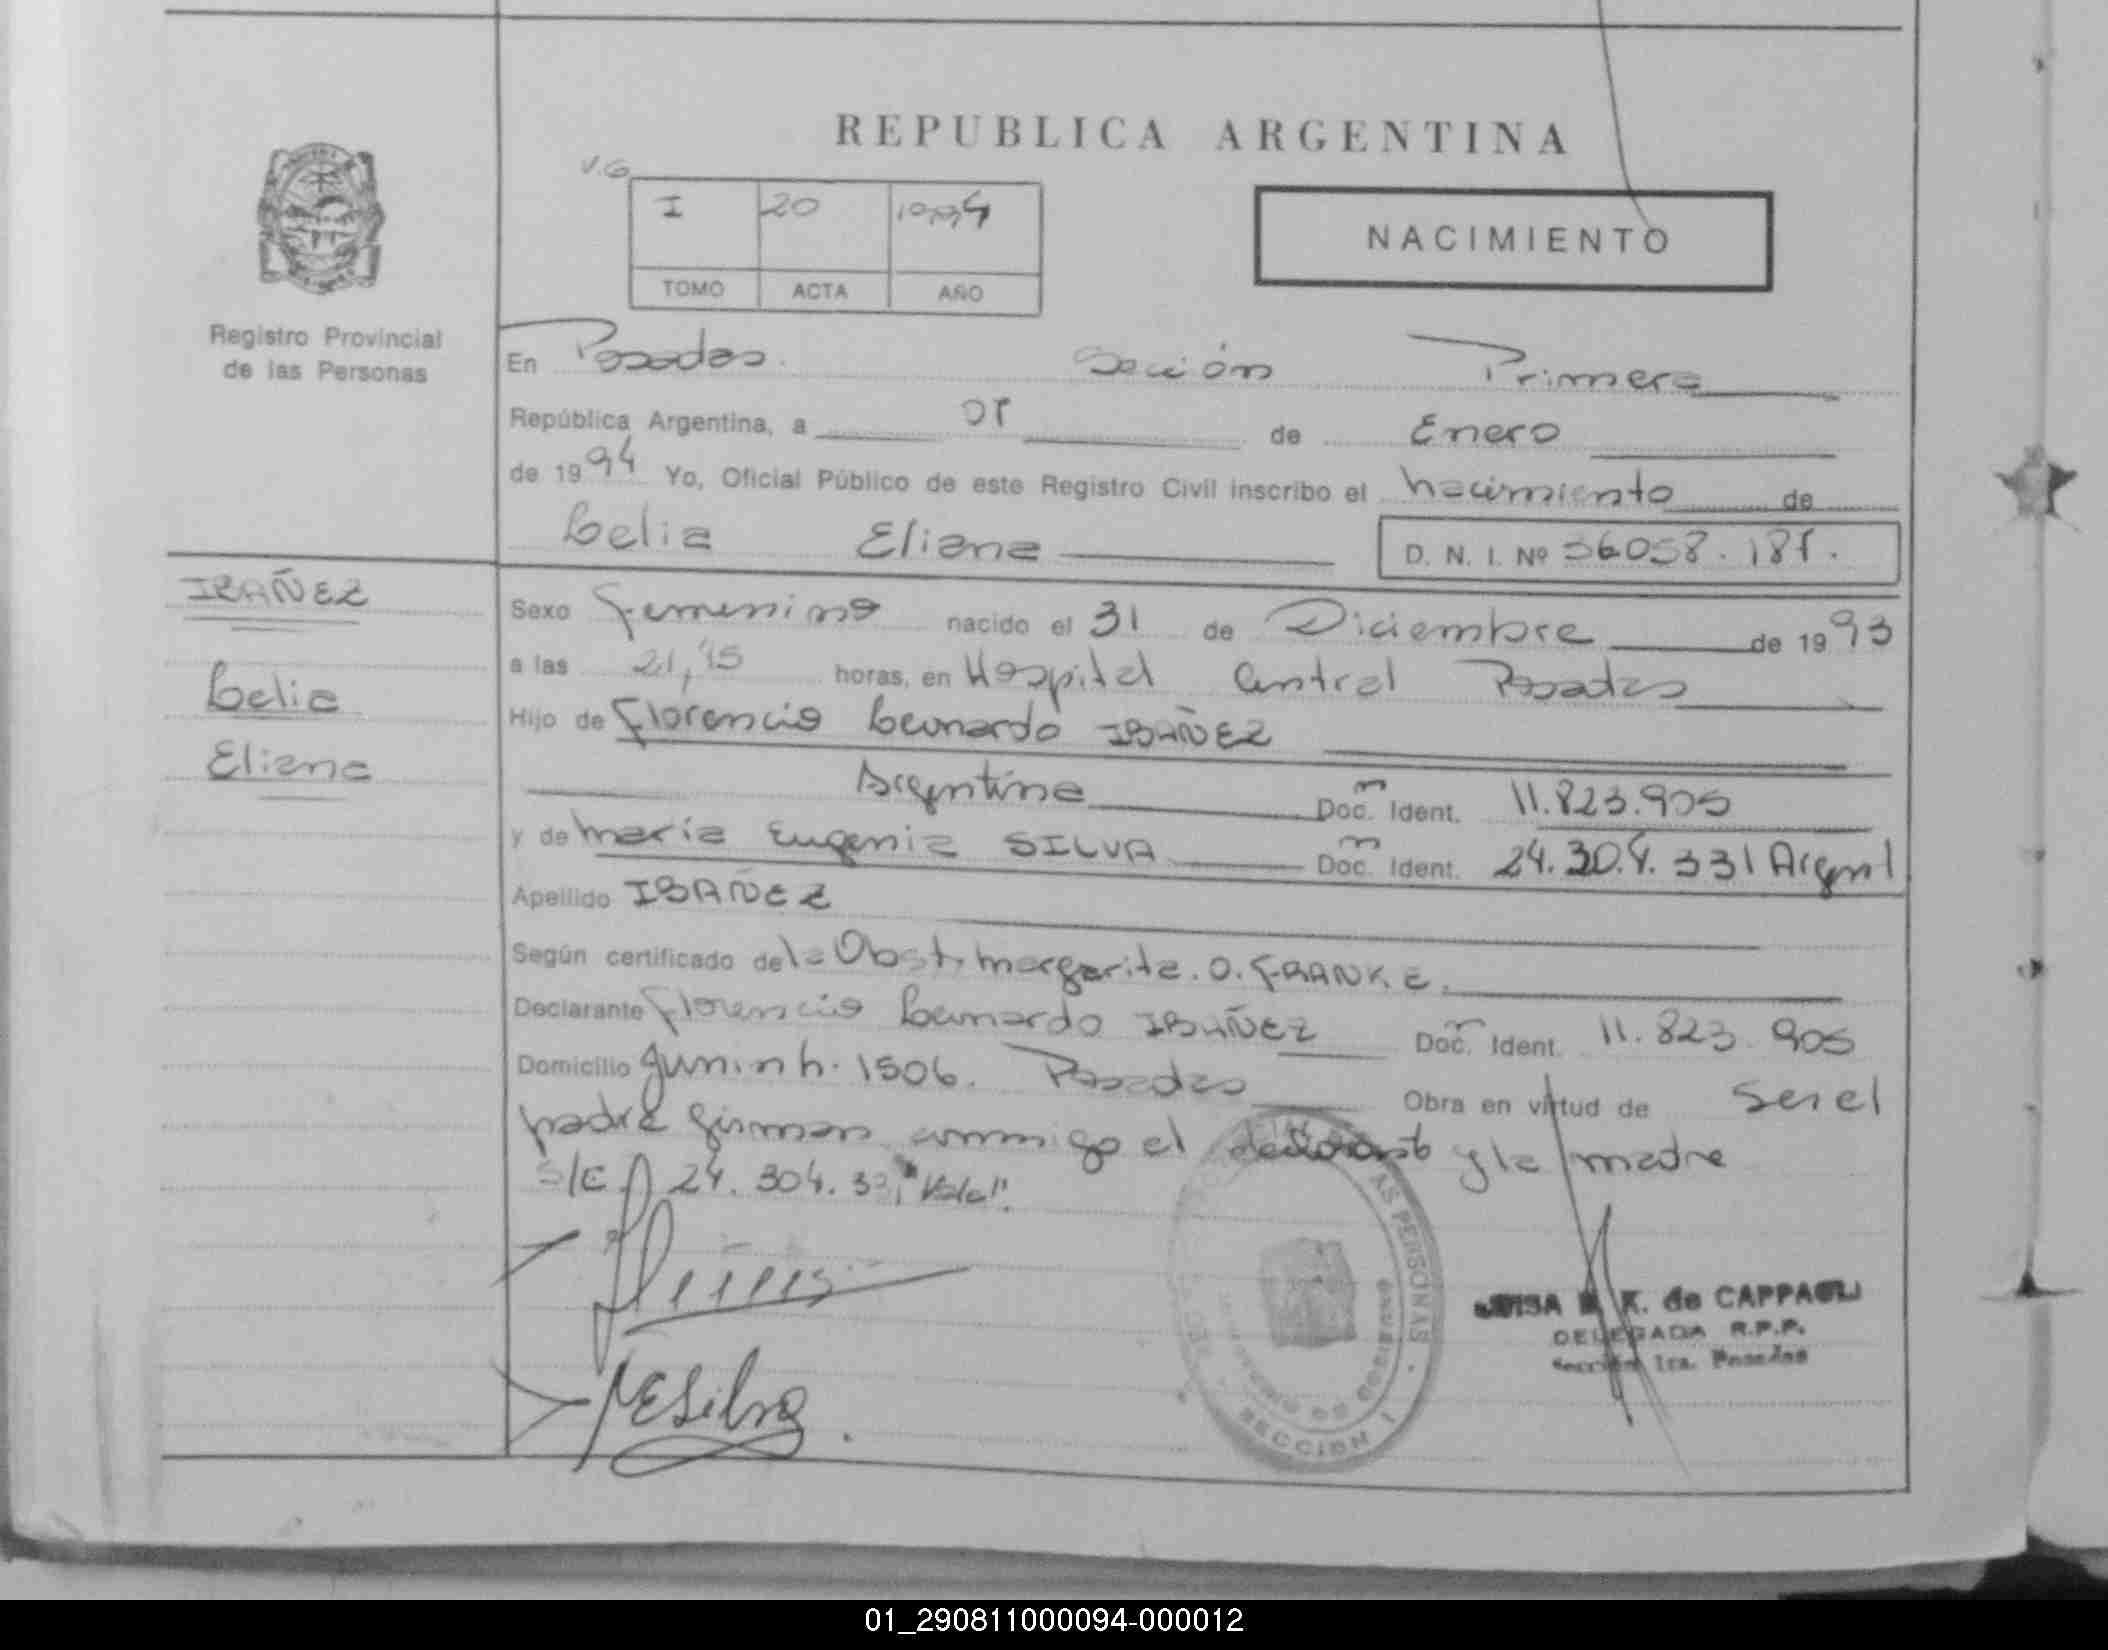 REPUBLICA ARGENTINA
V.G
I 20 1994
TOMO ACTA AÑO
NACIMIENTO
Registro Provincial
de las Personas
En Posadas. Sección Primera
República Argentina, a 07 de Enero
de 1994 Yo, Oficial Público de este Registro Civil inscribo el nacimiento de
Celia Eliana
D. N. I. Nº 36058.181.
IBAÑEZ
Celia
Eliana
Sexo Femenino nacido el 31 de Diciembre de 1993
a las 21,45 horas, en Hospital Central Posadas
Hijo de Florencio Leonardo IBAÑEZ
Argentina Doc. Ident. 11.823.905
y de maría Eugenia SILVA Doc. Ident. 24.304.331 Argent
Apellido IBAÑEZ
Según certificado de la Obst. margarita. O. FRANKE.
Declarante Florencio Leonardo IBAÑEZ Doc. Ident. 11.823.905
Domicilio Junin n. 1506. Posadas Obra en virtud de ser el
padre firman conmigo el declarante y la madre
S/E 24.304.331 "Vale".
MESilva
AS PERSONAS
SECCION 1
K. de CAPPAGLI
DELEGADA R.P.P.
Sección 1ra. Posadas
01_290811000094-000012